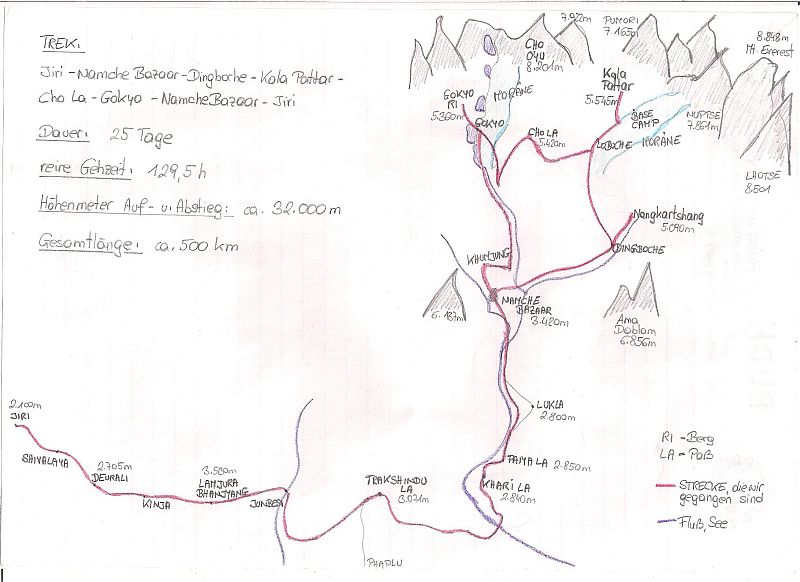 TREK:
Jiri - Namche Bazaar - Dingboche - Kala Pattar -
Cho La - Gokyo - Namche Bazaar - Jiri
Dauer: 25 Tage
reine Gehzeit: 129,5 h
Höhenmeter Auf- u. Abstieg: ca. 32.000 m
Gesamtlänge: ca. 500 km
7.922m
PUMORI
7.165m
8.848m
Mt. Everest
CHO
OYU
8.201m
Kala
Pattar
5.545m
GOKYO
RI
5.360m
MORÄNE
GOKYO
CHO LA
5.420m
BASE
CAMP
NUPTSE
7.861m
LOBOCHE
MORÄNE
LHOTSE
8.501
Nangkartshang
5.090m
DINGBOCHE
KHUMJUNG
NAMCHE
BAZAAR
3.420m
6.187m
Ama
Dablam
6.856m
LUKLA
2.800m
2.100m
JIRI
SHIVALAYA
2.705m
DEURALI
KINJA
3.500m
LAMJURA
BHANJYANG
JUNBESI
TRAKSHINDU
LA
3.071m
PHAPLU
PAIYA LA 2.850m
KHARI LA
2.840m
RI - Berg
LA - Paß
STRECKE, die wir
gegangen sind
Fluß, See